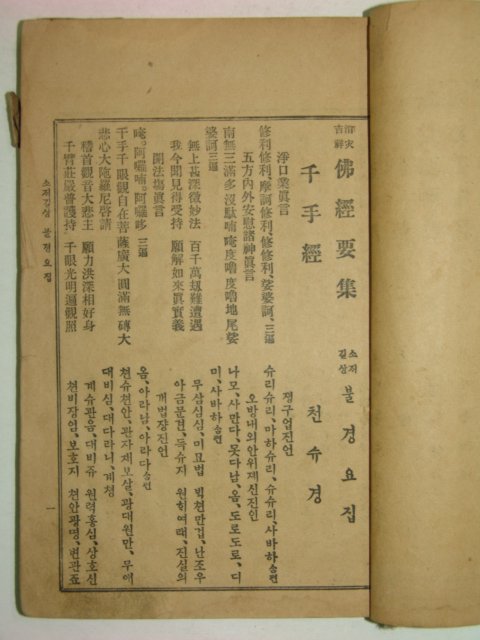 消灾吉祥 佛經要集
千手經
淨口業眞言
修利修利、摩訶修利、修修利、娑婆訶、三遍
五方內外安慰諸神眞言
南無三滿多 沒駄喃 唵度嚕度嚕地尾娑
婆訶三遍
無上甚深微妙法 百千萬刼難遭遇
我今聞見得受持 願解如來眞實義
開法藏眞言
唵。阿囉喃。阿囉哆 三遍
千手千眼觀自在菩薩廣大圓滿無碍大
悲心大陁羅尼啓請
稽首觀音大悲主 願力洪深相好身
千臂莊嚴普護持 千眼光明遍觀照
소재길상 불경요집
천슈경
졍구업진언
슈리슈리、마하슈리、슈슈리、사바하 숨편
오방내외안위제신진언
나모、사만다、못다남、옴、도로도로、디
미、사바하 숨편
무상심심、미묘법 백쳔만겁、난조우
아금문견、득슈지 원해여래、진실의
개법쟝진언
옴、아라남、아라다 숨편
쳔슈쳔안、관자재보살、광대원만、무애
대비심、대다라니、계쳥
계슈관음、대비쥬 원력홍심、상호신
쳔비장엄、보호지 쳔안광명、변관죠
소재길상 불경요집
一